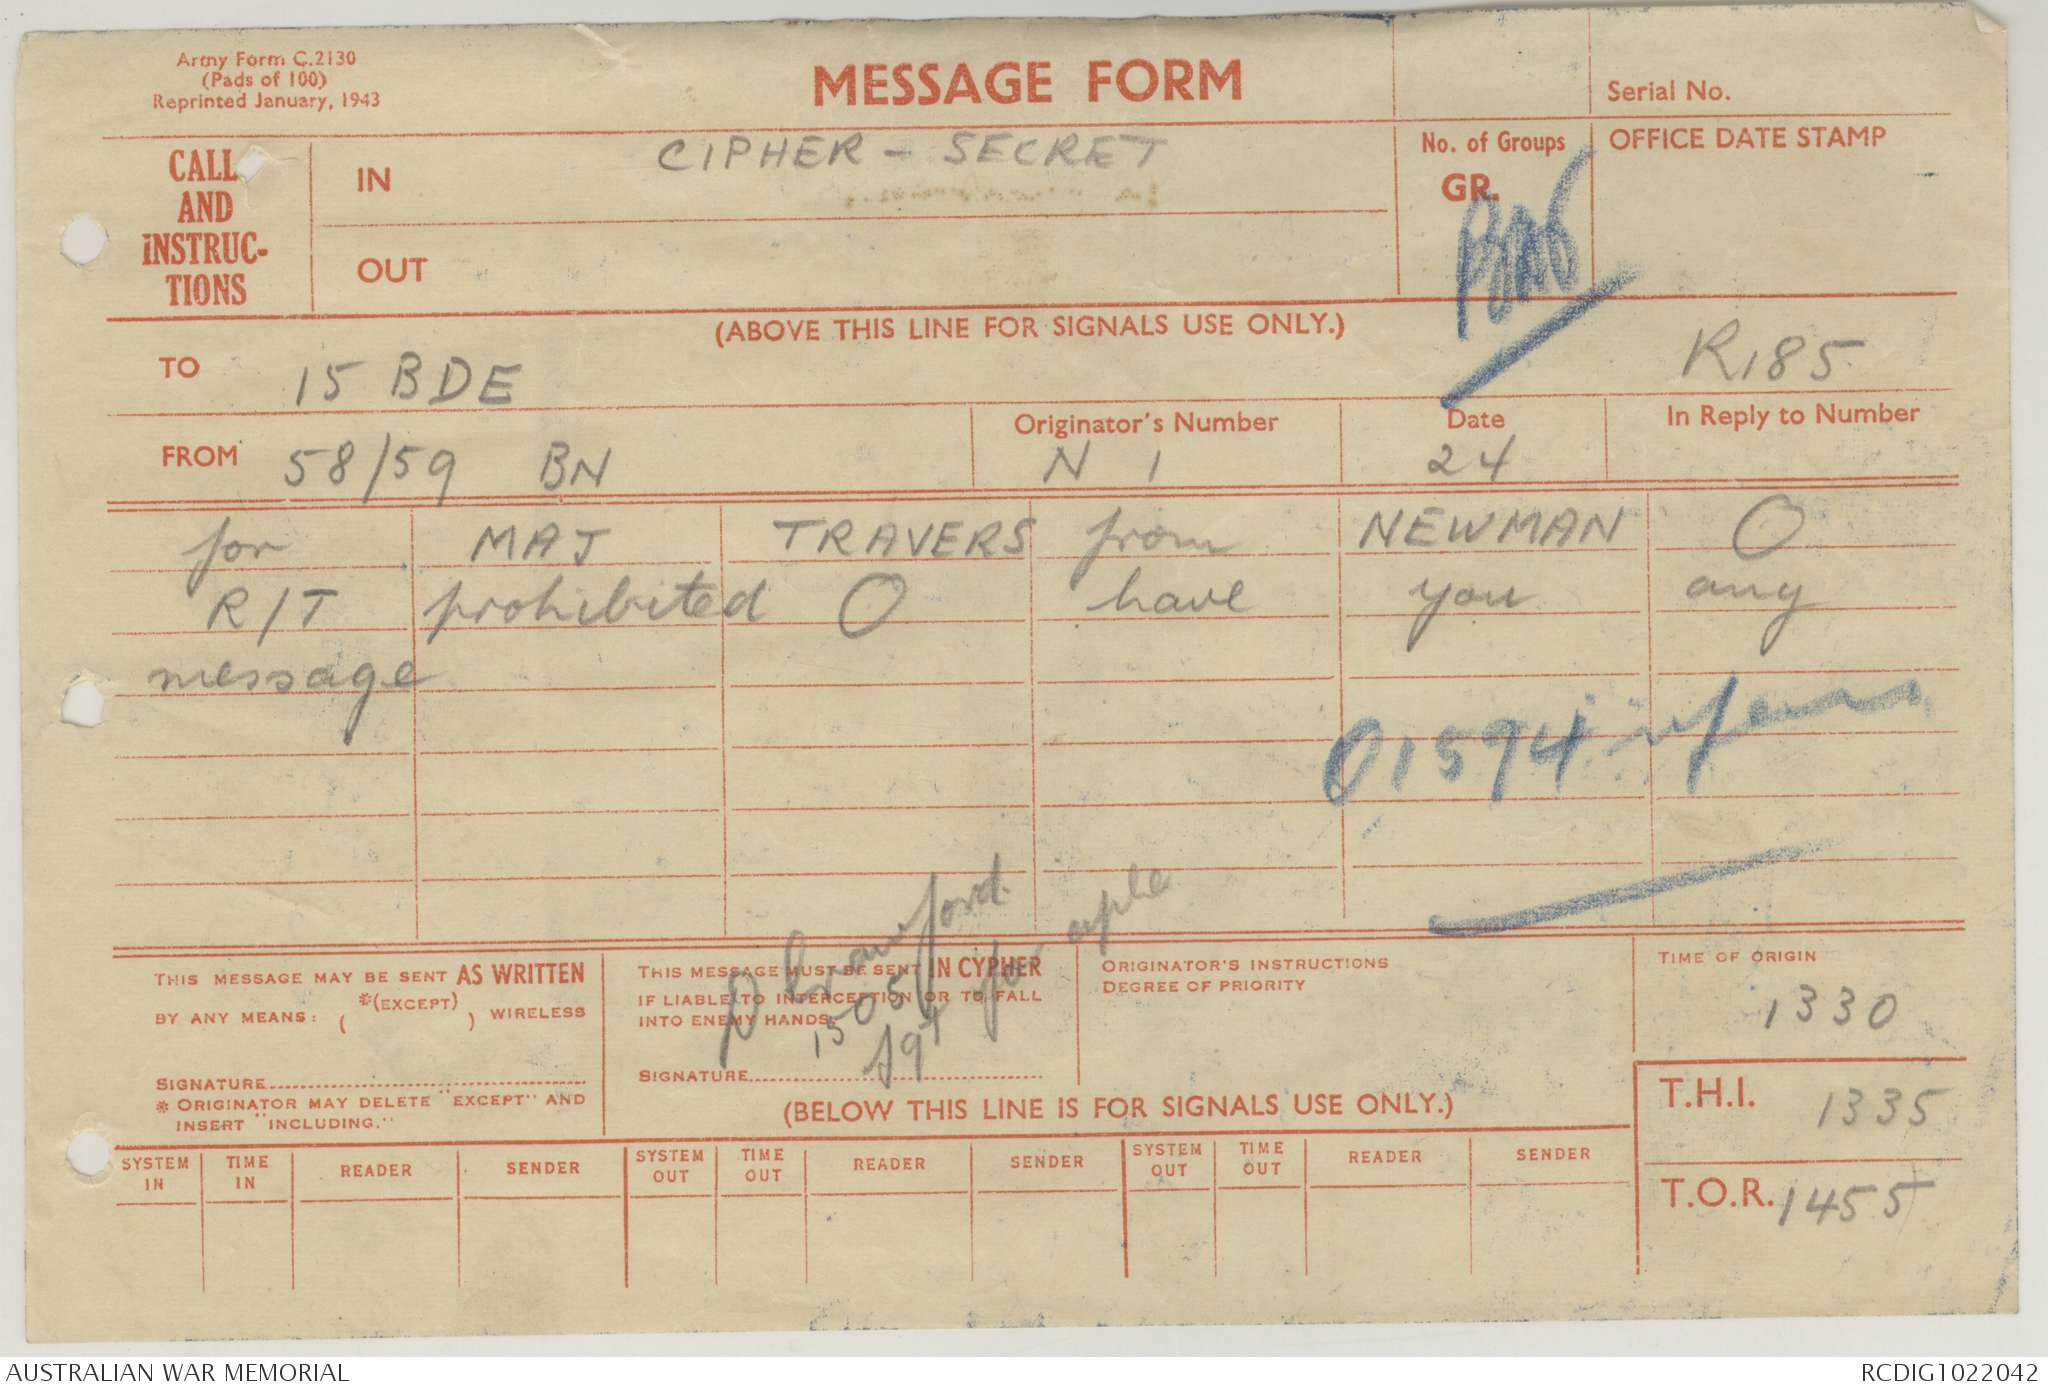 Army Form C.2130
(Pads of 100)
Reprinted January, 1943
MESSAGE FORM
Serial No.
CALL
AND
INSTRUC-
TIONS
IN
CIPHER - SECRET
OUT
No. of Groups
GR.
OFFICE DATE STAMP
(ABOVE THIS LINE FOR SIGNALS USE ONLY.)
TO 15 BDE
R185
FROM 58/59 BN
Originator's Number
N 1
Date
24
In Reply to Number
for MAJ TRAVERS from NEWMAN O
R/T prohibited O have you any
message
01594
Crawford
1505
THIS MESSAGE MAY BE SENT AS WRITTEN
BY ANY MEANS: ( *(EXCEPT) ) WIRELESS
SIGNATURE
* ORIGINATOR MAY DELETE "EXCEPT" AND
INSERT "INCLUDING."
THIS MESSAGE MUST BE SENT IN CYPHER
IF LIABLE TO INTERCEPTION OR TO FALL
INTO ENEMY HANDS.
SIGNATURE
ORIGINATOR'S INSTRUCTIONS
DEGREE OF PRIORITY
TIME OF ORIGIN
1330
(BELOW THIS LINE IS FOR SIGNALS USE ONLY.)
T.H.I. 1335
T.O.R. 1455
SYSTEM IN TIME IN READER SENDER SYSTEM OUT TIME OUT READER SENDER SYSTEM OUT TIME OUT READER SENDER
AUSTRALIAN WAR MEMORIAL
RCDIG1022042